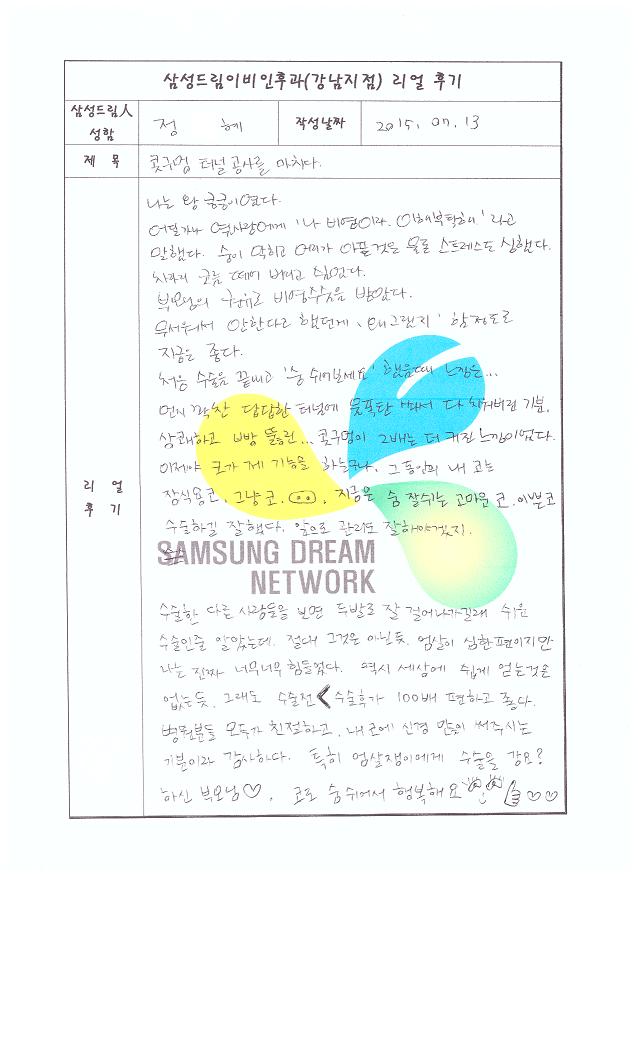 삼성드림이비인후과(강남지점) 리얼 후기
삼성드림人 성함
정 혜
작성날짜
2015. 07. 13
제 목
콧구멍 터널공사를 마치다.
리 얼 후 기
나는 왕 킁킁이였다.
어딜가나 옆사람에게 '나 비염이라. 이해부탁해.' 라고
말했다. 숨이 막히고 머리가 아픈것은 물론 스트레스도 심했다.
차라리 코를 떼어 버리고 싶었다.
부모님의 권유로 비염수술을 받았다.
무서워서 안한다고 했었는데, '왜그랬지' 할정도로
지금은 좋다.
처음 수술을 끝내고 '숨 쉬어보세요' 했을때 느낌은...
먼지 꽉찬 답답한 터널에 물폭탄 다 치워버린 기분.
상쾌하고 뻥 뚫린... 콧구멍이 2배는 더 커진 느낌이었다.
이제야 코가 제 기능을 하는구나. 그동안의 내 코는
장식용코, 그냥 코. 지금은 숨 잘쉬는 고마운 코. 이쁜코
수술하길 잘했다. 앞으로 관리도 잘해야겠지.
SAMSUNG DREAM
NETWORK
수술한 다른 사람들을 보면 두발로 잘 걸어나가길래 쉬운
수술인줄 알았는데. 절대 그것은 아닌듯. 엄살이 심한편이지만
나는 진짜 너무너무 힘들었다. 역시 세상에 쉽게 얻는것은
없는듯. 그래도 수술전 < 수술후가 100배 편하고 좋다.
병원분들 모두가 친절하고, 내 코에 신경 많이 써주시는
기분이라 감사하다. 특히 엄살쟁이에게 수술을 강요?
하신 부모님♡. 코로 숨 쉬어서 행복해요 ♡♡